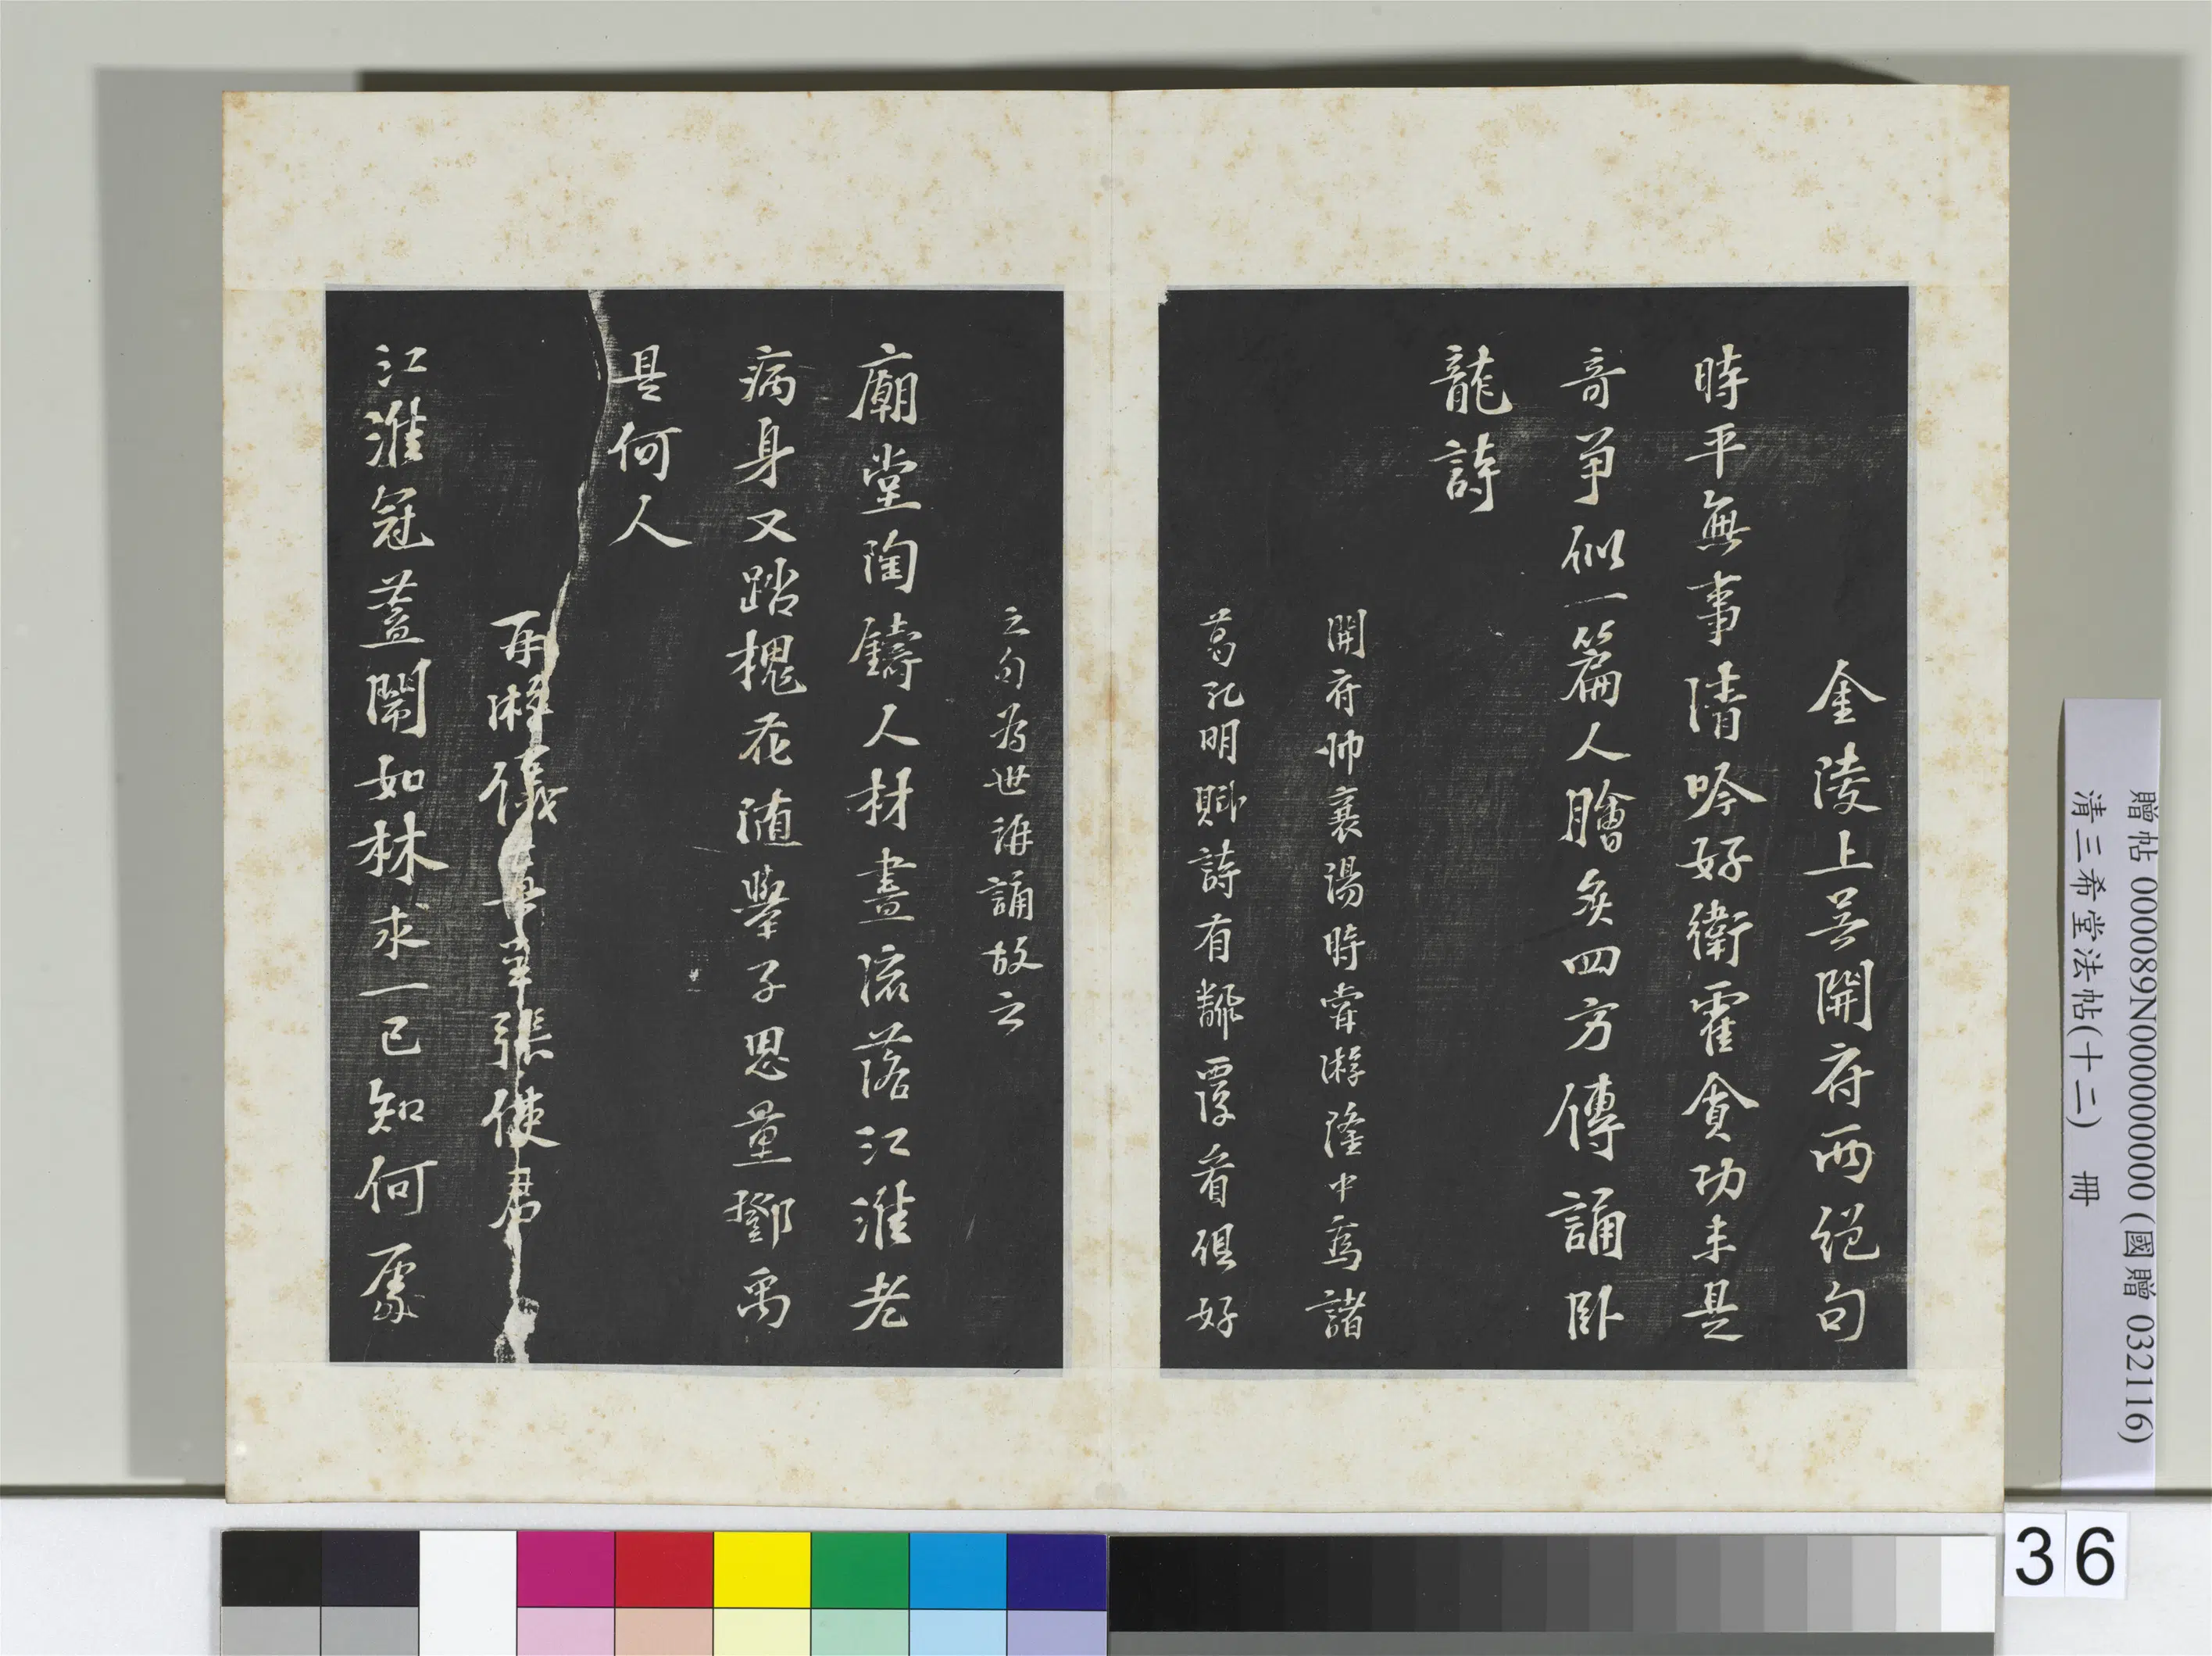 金陵上吴開府两絕句
時平無事隋吟好衛霍貪功未是
竒爭似一篇人膾炙四方傳誦卧
龍詩
開府帥襄陽時甞游隆中為諸
葛孔明賦詩有翻覆看俱好
之句為世誦故云
廟堂陶鑄人材盡流落江淮老
病身又踏槐花随舉子思量鄧禹
是何人
再游儀真呈張使君
江淮冠蓋鬧如林求一已知何處
贈帖 000089N000000000 (國贈 032116)
清三希堂法帖(十二) 冊
36